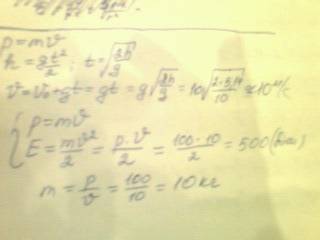 p=mv
h=gt²/2; t=√(2h/g)
v=v₀+gt=gt=g√(2h/g)=10√(2·5,14/10)≈10 м/с
p=mv
E=mv²/2=p·v/2=100·10/2=500
m=p/v=100/10=10кг